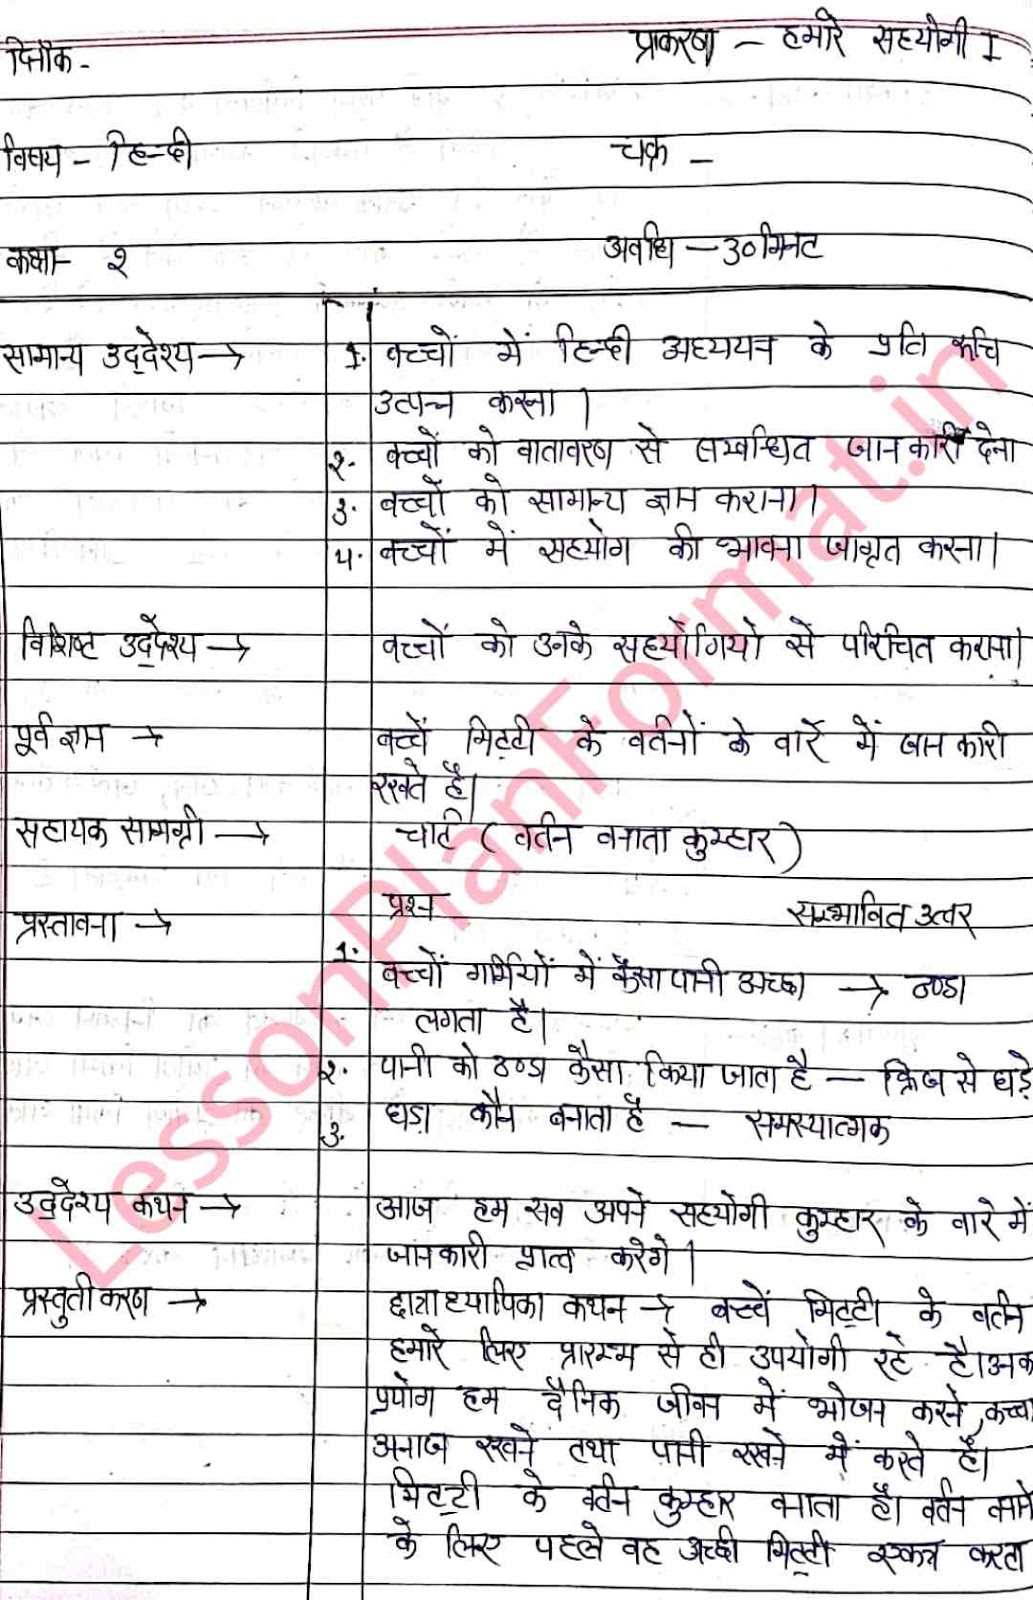 दिनाँक- प्राकरण - हमारे सहयोगी I
विषय - हिन्दी चक्र -
कक्षा- २ अवधि - ३० मिनट
सामान्य उद्देश्य → 1. बच्चों में हिन्दी अध्ययन के प्रति रूचि
उत्पन्न करना।
२. बच्चों को वातावरण से सम्बन्धित जानकारी देना
३. बच्चों को सामान्य ज्ञान कराना।
४. बच्चों में सहयोग की भावना जाग्रत करना।
विशिष्ट उद्देश्य → बच्चों को उनके सहयोगियों से परिचित कराना।
पूर्व ज्ञान → बच्चें मिट्टी के वर्तनों के वारें में जानकारी
रखते है।
सहायक सामग्री → चार्ट (वर्तन वनाता कुम्हार)
प्रस्तावना → प्रश्न सम्भावित उत्तर
1. बच्चों गर्मियों में कैसा पानी अच्छा → ठण्डा
लगता है।
२. पानी को ठण्डा कैसा किया जाता है - फ्रिज से घड़े
३. घड़ा कौन बनाता है - समस्यात्मक
उद्देश्य कथन → आज हम सव अपने सहयोगी कुम्हार के वारे में
जानकारी प्राप्त करेगे।
प्रस्तुतीकरण → छात्राध्यापिका कथन → बच्चें मिट्टी के वर्तन
हमारे लिए प्रारम्भ से ही उपयोगी रहे है।
प्रयोग हम दैनिक जीवन में भोजन करने, कच्चा
अनाज रखने तथा पानी रखने में करते है।
मिट्टी के वर्तन कुम्हार वनाता है। वर्तन वनाने
के लिए पहले वह अच्छी मिट्टी एकत्र करता
LessonPlanFormat.in